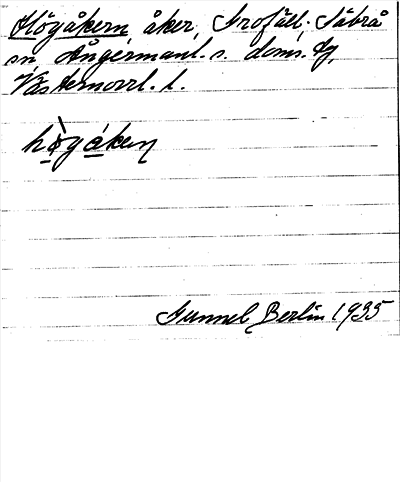 Högåkern åker, Frofäll. Säbrå
sn, Ångermanl. s. doms. fg,
Västernorrl. l.
högåkeṇ
Gunnel Berlin 1935